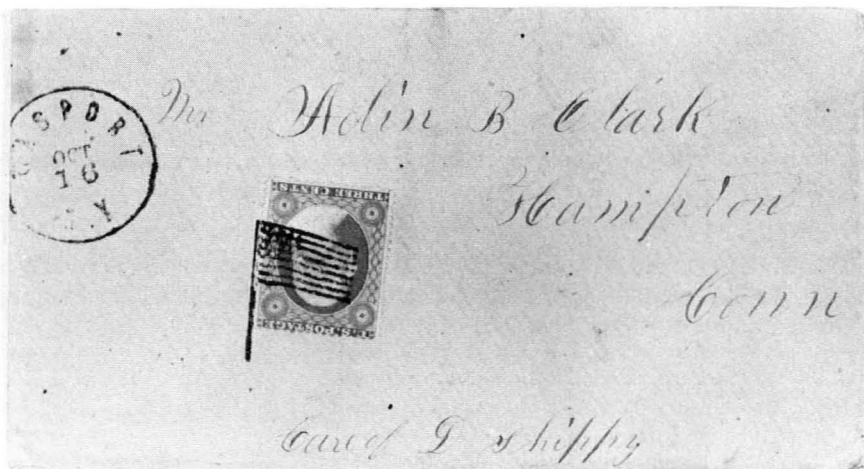 GASPORT
OCT
16
N.Y.
Mr Adin B Clark
Hampton
Conn
THREE CENTS
U.S. POSTAGE
Care of D Shippy